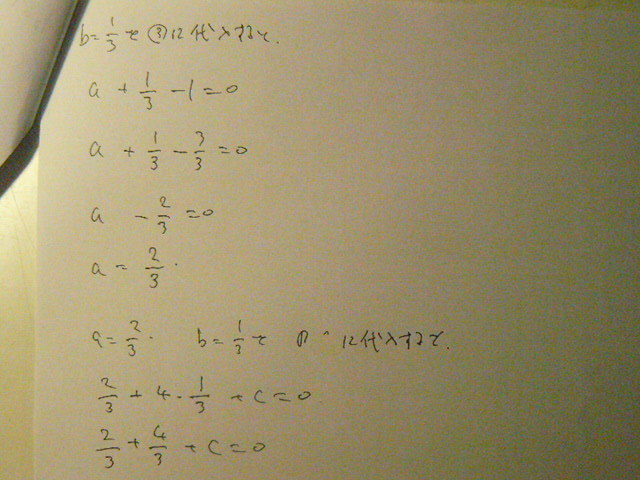 b=1/3を③に代入すると.
a + 1/3 - 1 = 0
a + 1/3 - 3/3 = 0
a - 2/3 = 0
a = 2/3.
a = 2/3. b = 1/3を に代入すると.
2/3 + 4・1/3 + c = 0.
2/3 + 4/3 + c = 0